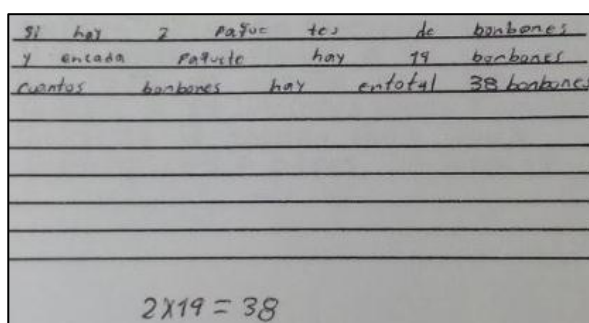 si hay 2 paquetes de bonbones
y encada paquete hay 19 bonbones
cuantos bonbones hay entotal 38 bonbones
2x19=38